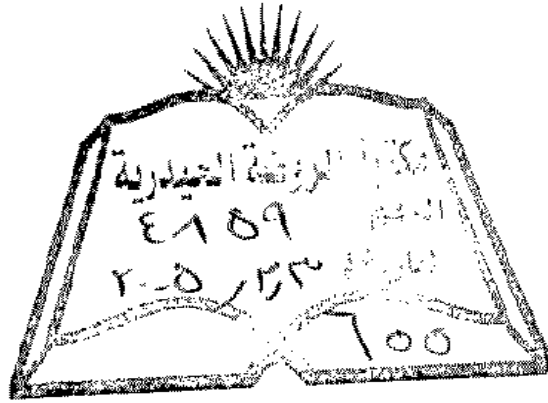 مكتبة الروضة الحيدرية
الرقم ٤٨٥٩
التاريخ
٦٥٥